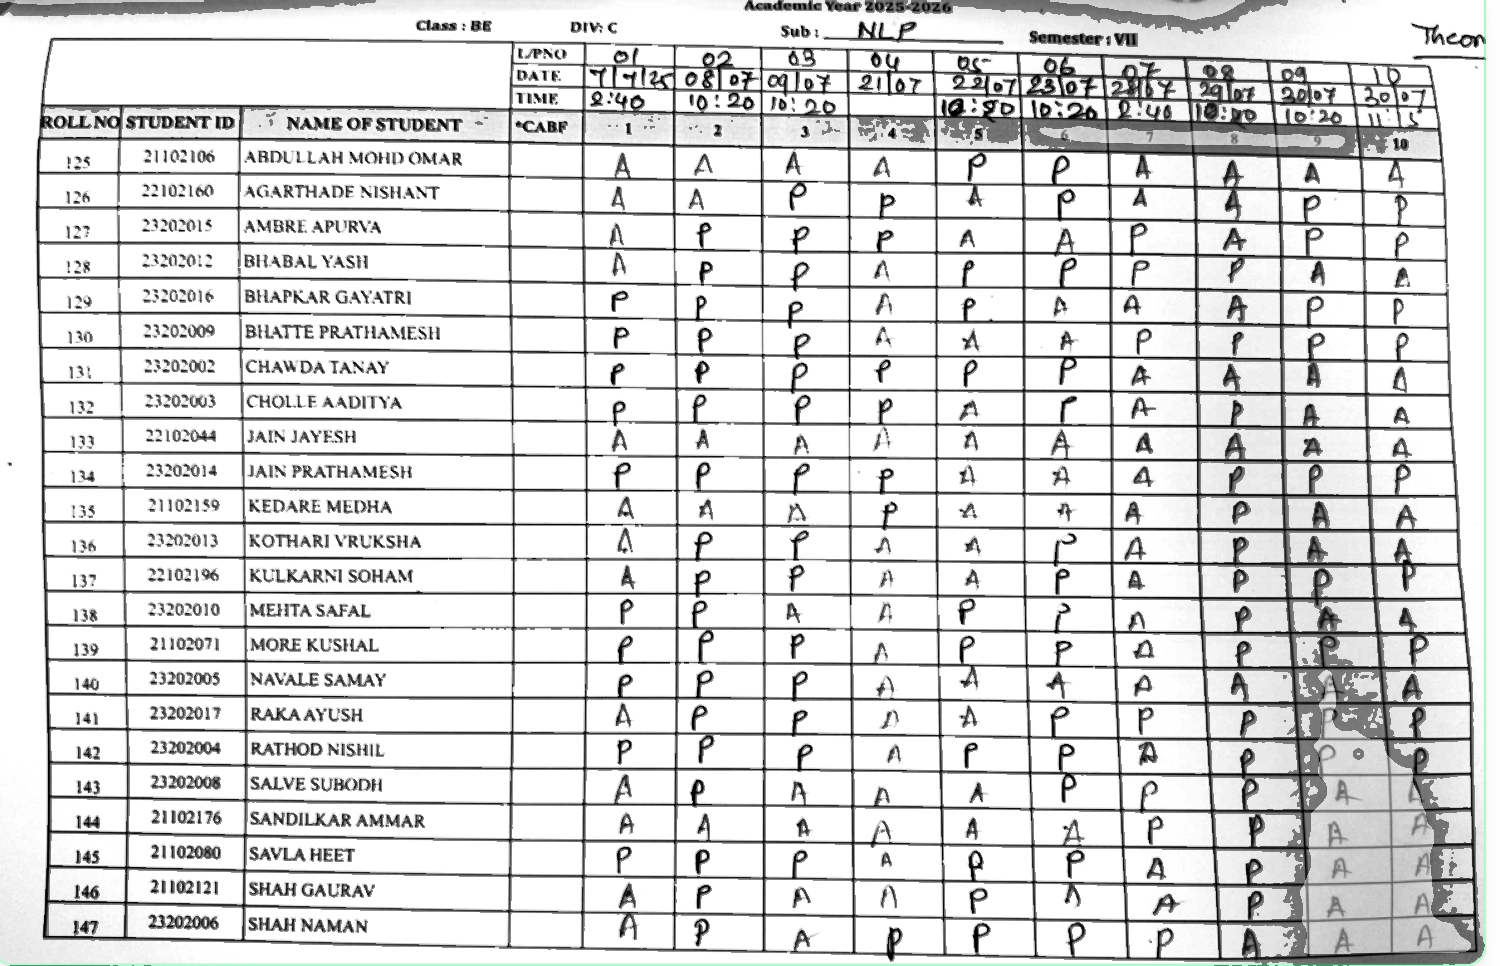 Academic Year 2025-2026
Class : BE DIV: C Sub : NLP Semester : VII Theory
L/PNO 01 02 03 04 05 06 07 08 09 10
DATE 7/7/25 08/07 09/07 21/07 22/07 23/07 28/07 29/07 30/07 30/07
TIME 2:40 10:20 10:20 10:20 10:20 2:40 10:20 10:20 11:15
ROLL NO STUDENT ID NAME OF STUDENT *CABF 1 2 3 4 5 6 7 8 9 10
125 21102106 ABDULLAH MOHD OMAR A A A A P P A A A A
126 22102160 AGARTHADE NISHANT A A P P A P A A P P
127 23202015 AMBRE APURVA A P P P A A P A P P
128 23202012 BHABAL YASH A P P A P P P P A A
129 23202016 BHAPKAR GAYATRI P P P A P A A A P P
130 23202009 BHATTE PRATHAMESH P P P A A A P P P P
131 23202002 CHAWDA TANAY P P P P P P A A A A
132 23202003 CHOLLE AADITYA P P P P A P A P A A
133 22102044 JAIN JAYESH A A A A A A A A A A
134 23202014 JAIN PRATHAMESH P P P P A A A P P P
135 21102159 KEDARE MEDHA A A A P A A A P A A
136 23202013 KOTHARI VRUKSHA A P P A A P A P A A
137 22102196 KULKARNI SOHAM A P P A A P A P P P
138 23202010 MEHTA SAFAL P P A A P P A P A A
139 21102071 MORE KUSHAL P P P A P P A P P P
140 23202005 NAVALE SAMAY P P P A A A A A A A
141 23202017 RAKA AYUSH A P P A A P P P P P
142 23202004 RATHOD NISHIL P P P A P P A P P P
143 23202008 SALVE SUBODH A P A A A P P P A
144 21102176 SANDILKAR AMMAR A A A A A A P P A A
145 21102080 SAVLA HEET P P P A P P A P A A
146 21102121 SHAH GAURAV A P A A P A A P A A
147 23202006 SHAH NAMAN A P A P P P P A A A